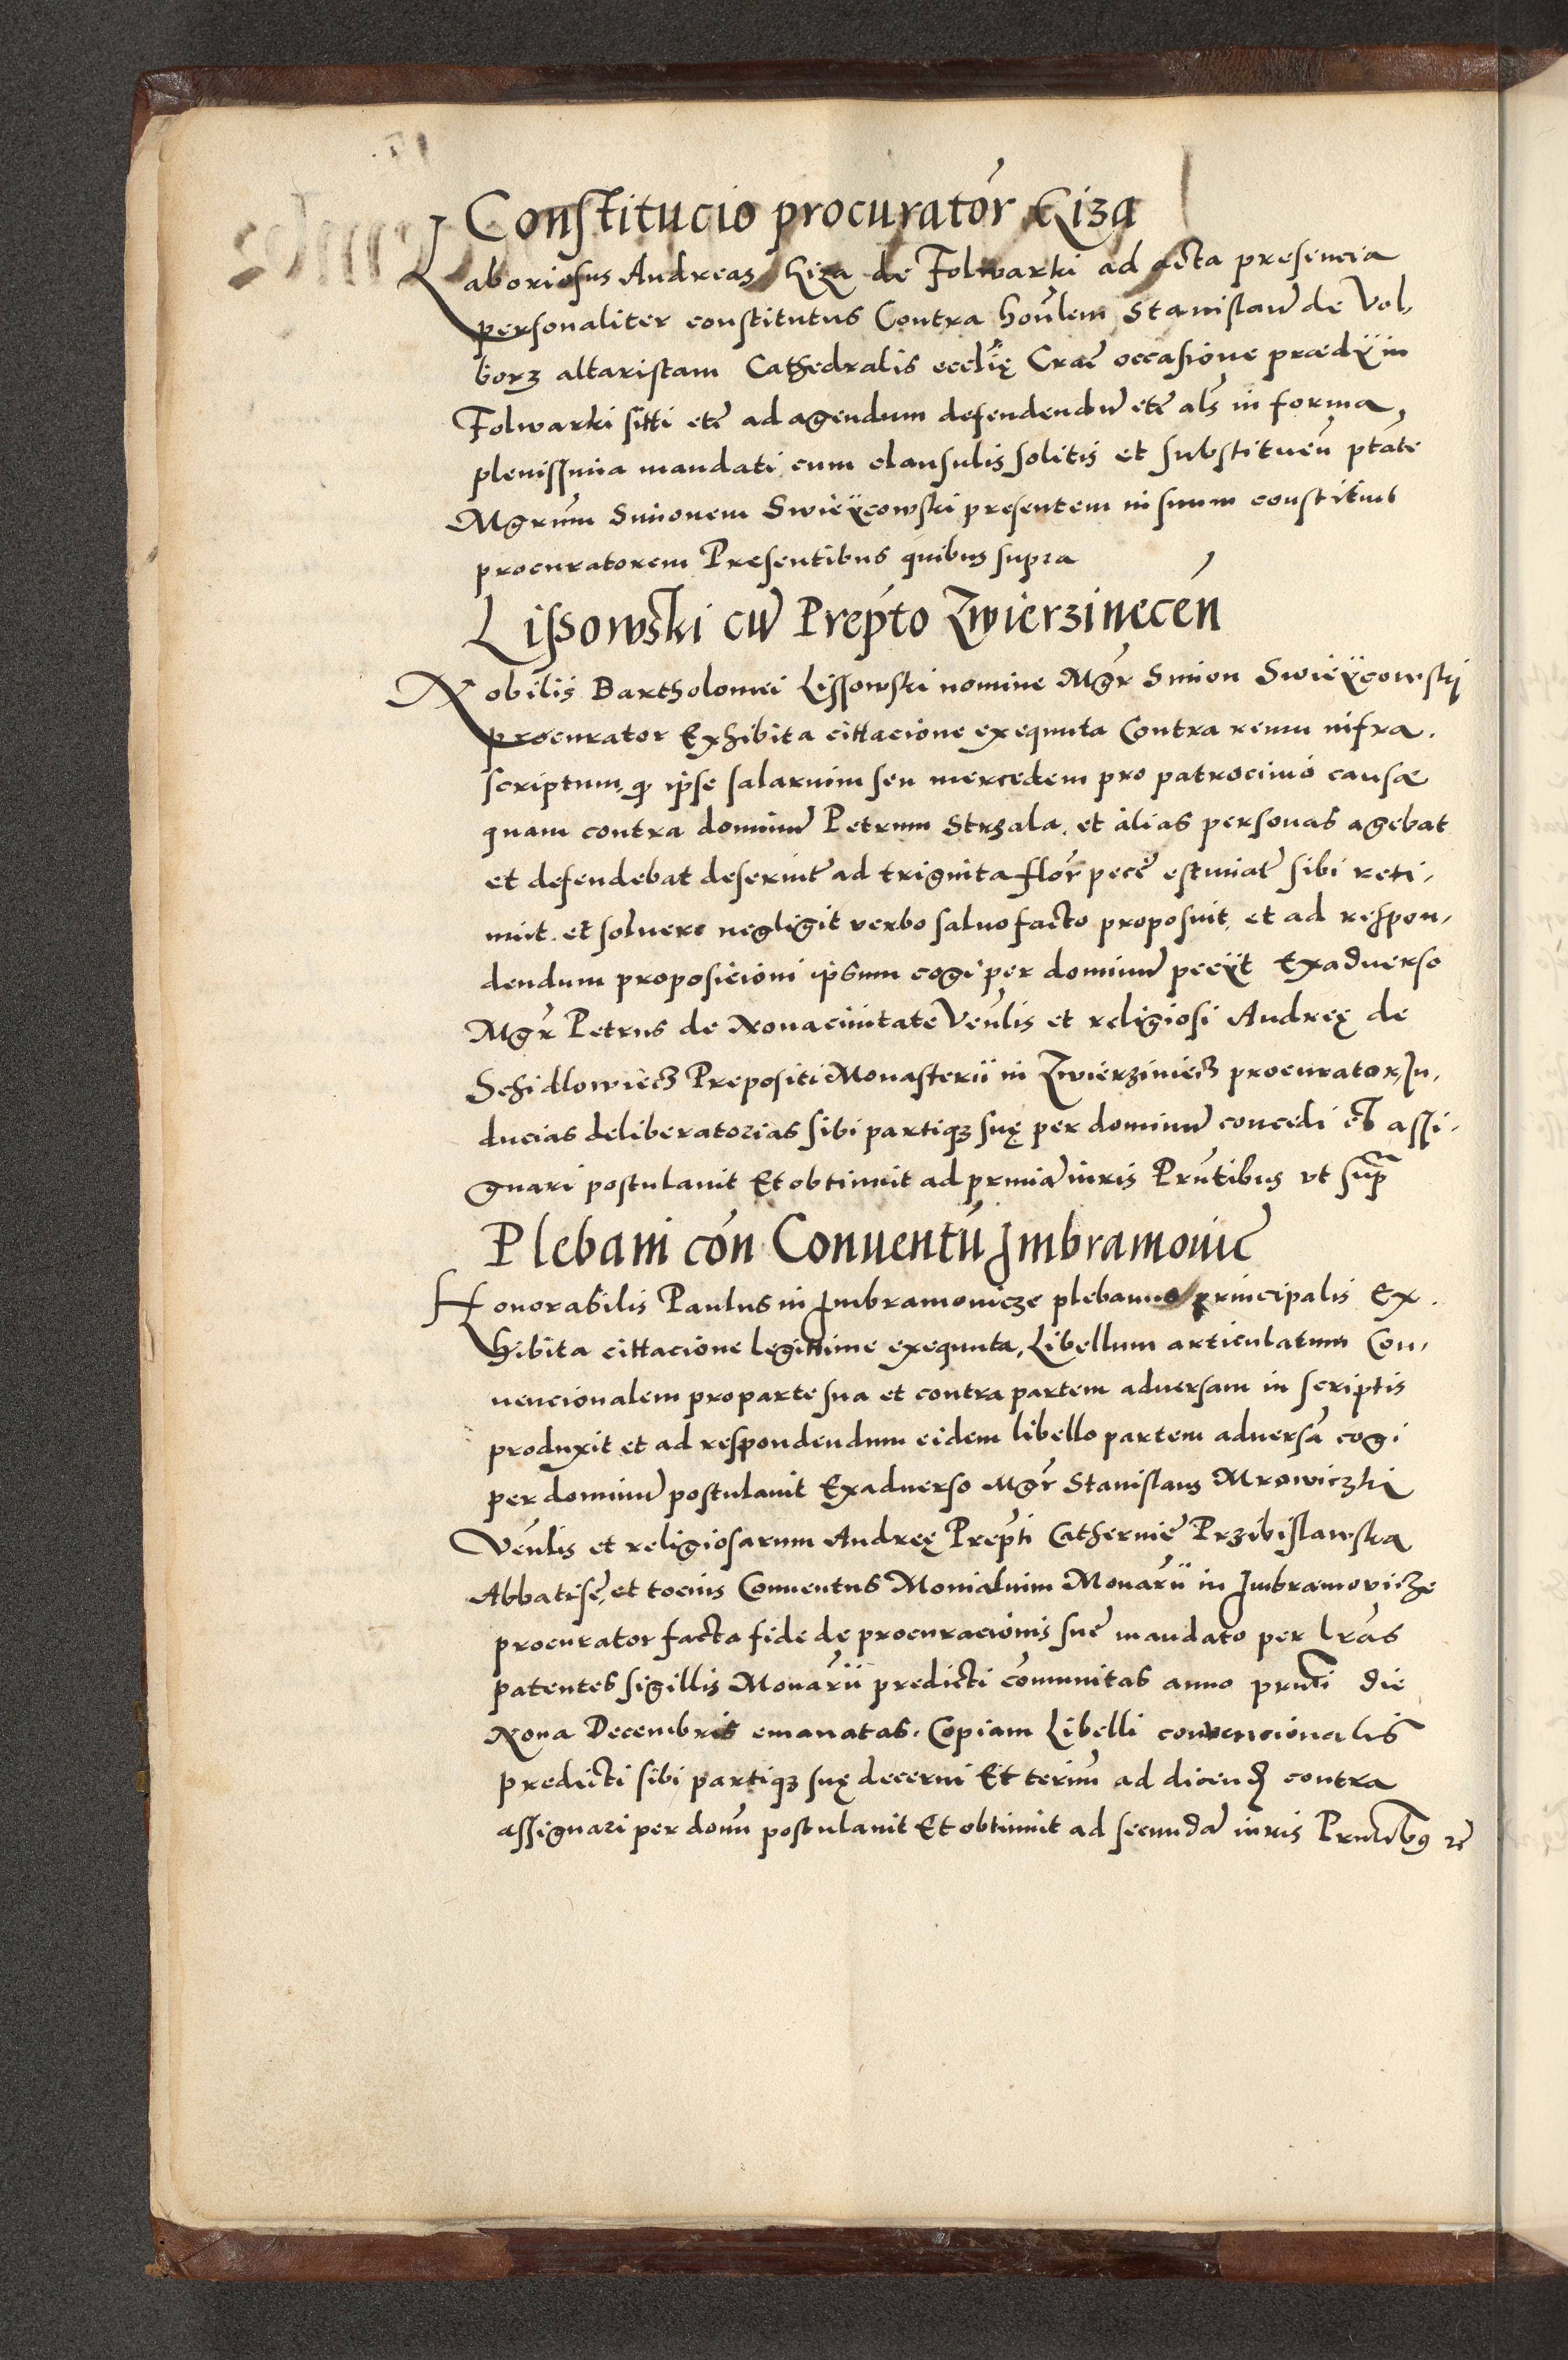 Constitucio procurator Kiza
Laboriosus Andreas Kiza de Folwarki ad acta presencia
personaliter constitutus Contra honlem Stanislaū de Vol,
borz altaristam Cathedralis ecclię Crac̄ occasione praedÿ in
Folwarki sitti etc̄ ad agendum defendendū etc̄ als in forma
plenissima mandati cum clausulis solitis et substituen̄ ptāte
Mgrum Simonem Swieÿcowski presentem in suum constituit
procuratorem Presentibus quibus supra
Lissowski cū Prepto Zwierzinecen̄
Nobilis Bartholomei Lissowski nomine Mgr Simon Swieÿcowsky
procurator Exhibita cittacione exequuta Contra reum infra.
scriptum, q ipse salarium seu mercedem pro patrocinio causæ
quam contra dominū Petrum Strzala. et alias personas agebat
et defendebat deseruit ad triginta flor pecc̄ estimat̄ sibi reti,
nuit. et soluere negligit verbo saluo facto proposuit, et ad respon,
dendum proposicioni ipsum cogi per dominū peciÿt Exaduerso
Mgr Petrus de Nouaciuitate Venlis et religiosi Andreę de
Schidlowiecz Prepositi Monasterii in Zwierziniecz procurator, In,
ducias deliberatorias sibi partiqz suę per dominū concedi et assi,
gnari postulauit Et obtinuit ad primā iuris Prntibus vt supra
Plebani con Conuentū Imbramouic̄
Honorabilis Paulus in Imbramouicze plebanus principalis Ex.
hibita cittacione legittime exequuta, Libellum articulatum Con,
uencionalem pro parte sua et contra partem aduersam in scriptis
produxit et ad respondendum eidem libello partem aduersā cogi
per dominū postulauit Exaduerso Mgr Stanislaus Mrowiczki
Venlis et religiosarum Andreę Prepti Catherine Przibislawska
Abbatisse, et tocius Conuentus Monialium Monarii in Imbramovicze
procurator facta fide de procuracionis sue mandato per lras
patentes sigillis Monarii predicti comunitas anno prnti die
Nona Decembris emanatas. Copiam Libelli convencionalis
predicti sibi partiqz suę decerni Et termū ad dicend contra
assignari per domū postulauit Et obtinuit ad secundā iuris Prntibus